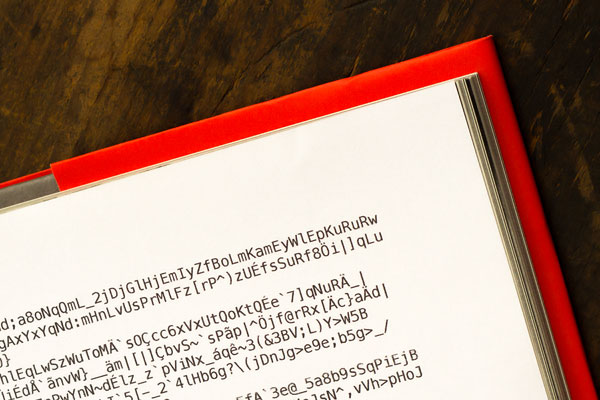 d;a8oNqQmL_2jDjGlHjEmIyZfBoLmKamEyWlEpKuRuRw
gAxYxYqNd:mHnLvUsPrMlFz[rP^)zUÉfsSuRf8Öi|]qLu
hlEqLwSzWuToMÄ`sOÇcc6xVxUtQoKtQÉe`7]qNuRÄ_|
iÉdÄ`ãnvw}__äm|[|]ÇbvS~`sPãp|^Öjf@rRx[Äc}aÄd|
PwYnN~dÉlz_z`pViNx_áqê~3(&3BV;L)Y>W5B
I`5[–_2`4lHb6g?\(jDnJg>e9e;b5g>_/
fA`3e@_5a8b9sSqPiEjB